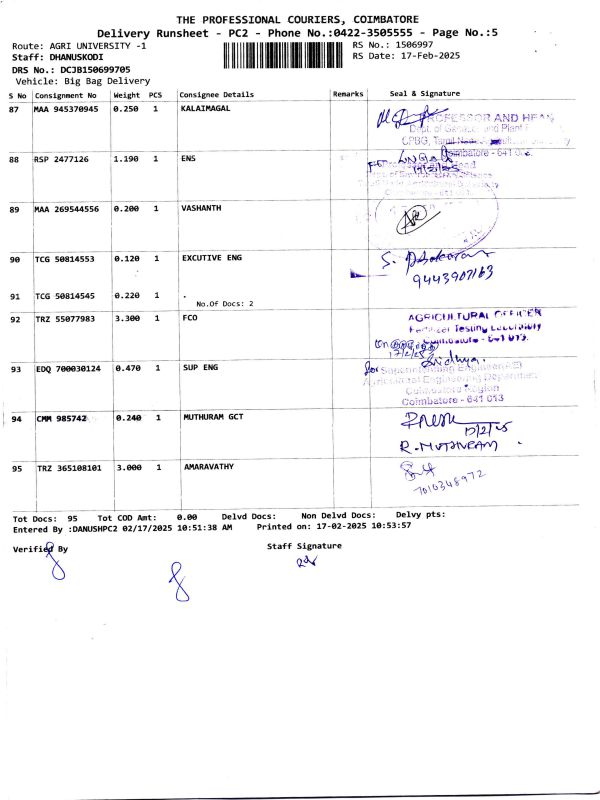 THE PROFESSIONAL COURIERS, COIMBATORE
Delivery Runsheet - PC2 - Phone No.:0422-3505555 - Page No.:5
Route: AGRI UNIVERSITY -1
RS No.: 1506997
Staff: DHANUSKODI
RS Date: 17-Feb-2025
DRS No.: DCJB150699705
Vehicle: Big Bag Delivery
S No Consignment No Weight PCS Consignee Details Remarks Seal & Signature
87 MAA 945370945 0.250 1 KALAIMAGAL
PROFESSOR AND HEAD
88 RSP 2477126 1.190 1 ENS
89 MAA 269544556 0.200 1 VASHANTH
90 TCG 50814553 0.120 1 EXCUTIVE ENG
9443907163
91 TCG 50814545 0.220 1 .
No.Of Docs: 2
92 TRZ 55077983 3.300 1 FCO
AGRICULTURAL OFFICER
Fertilizer Testing Laboratory
Coimbatore - 641 013.
17/2/25
93 EDQ 700030124 0.470 1 SUP ENG
for Superintending Engineer(AE)
Agricultural Engineering Department
Coimbatore Region
Coimbatore - 641 013
94 CMM 985742 0.240 1 MUTHURAM GCT
17/2/25
R. MUTHURAM
95 TRZ 365108101 3.000 1 AMARAVATHY
7010348972
Tot Docs: 95 Tot COD Amt: 0.00 Delvd Docs: Non Delvd Docs: Delvy pts:
Entered By :DANUSHPC2 02/17/2025 10:51:38 AM Printed on: 17-02-2025 10:53:57
Verified By
Staff Signature